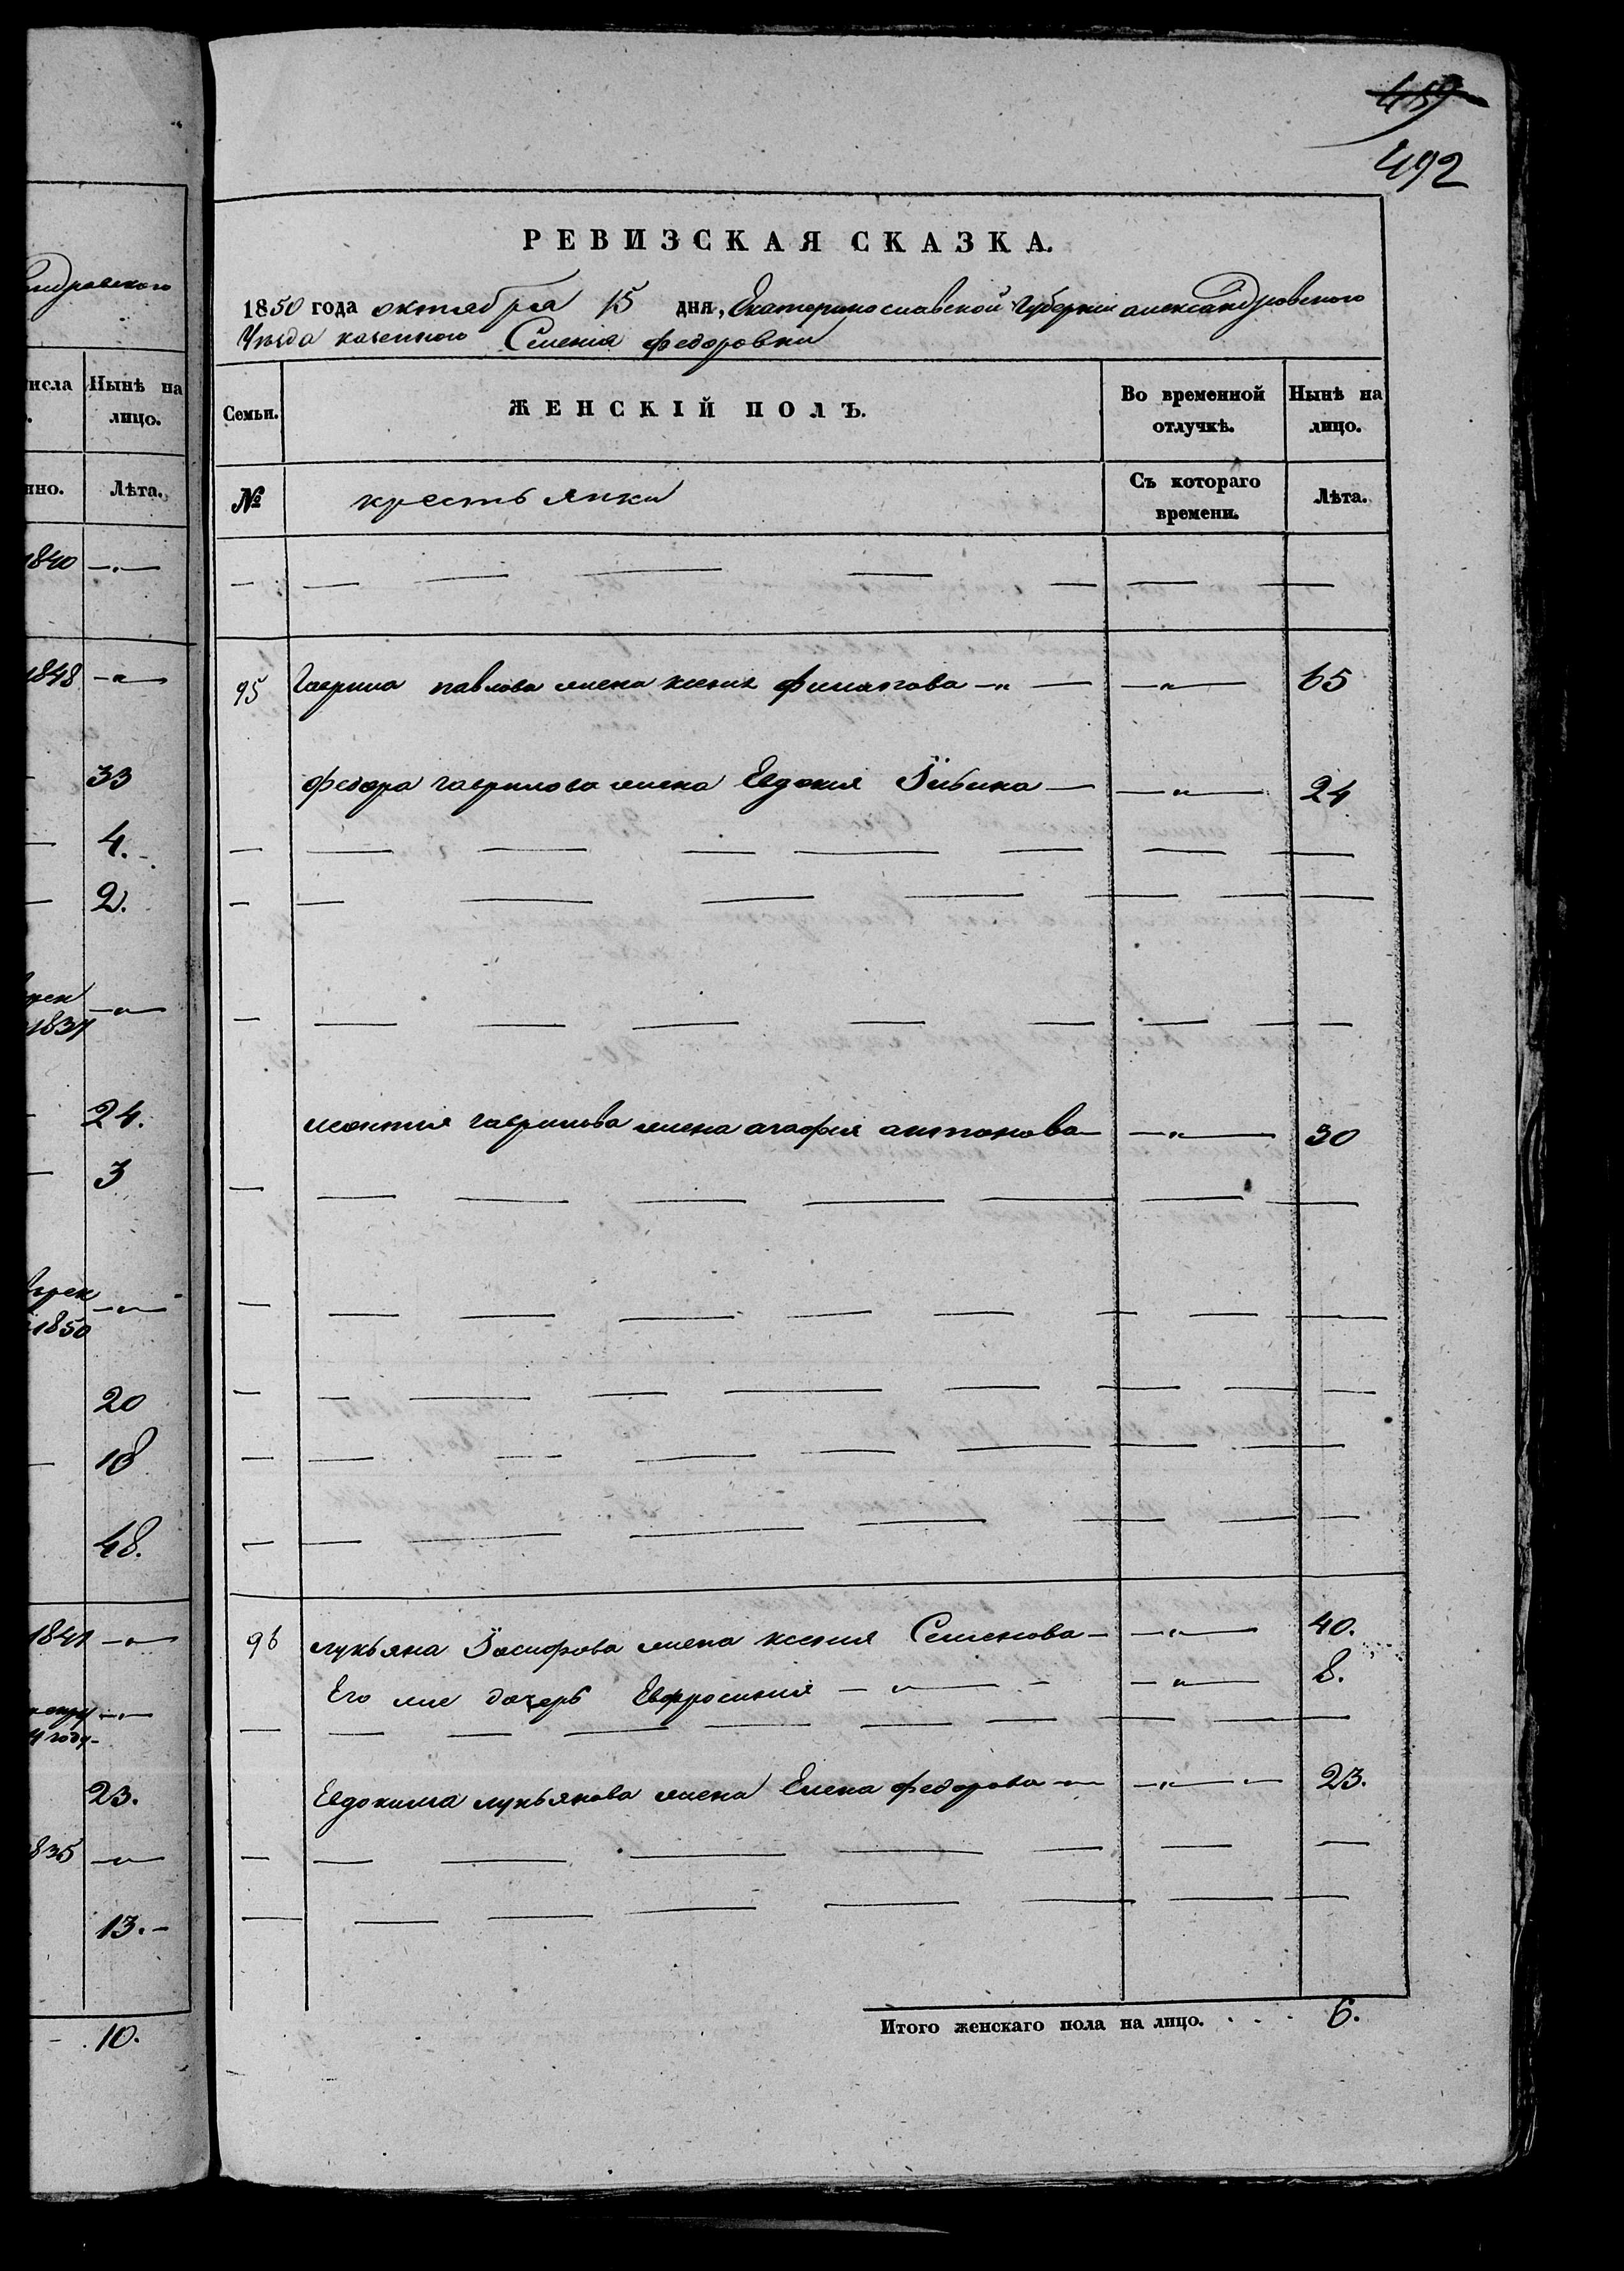 459
492
РЕВИЗСКАЯ СКАЗКА.
1850 года октября 15 дня, Екатеринославской Губернии александровского
Уезда казенного Селения федоровки
Семьи. ЖЕНСКІЙ ПОЛЪ. Во временной отлучкѣ. Нынѣ на лицо.
№ крестьянки Съ котораго времени. Лѣта.
95 Гаврила павлова жена ксения филипова — " — — " — 65
федора гаврилова жена Евдокия — — " — 24
монтия гаврилова жена агафия антонова — — " — 30
96 лукьяна Іосифова жена ксения Семенова — — " — 40.
Его же дочерь Евфросиния — " — — " — 8.
Евдокима лукьянова жена Елена федорова — — " — 23.
Итого женскаго пола на лицо. . . . 6.
ндровского
исла Нынѣ на
лицо.
нно. Лѣта.
1840 — " —
1848 — " —
33
4.
2.
1837 — " —
24.
3
1850 — " —
20
18
48.
1841 — " —
году
23.
835 — " —
13.
10.